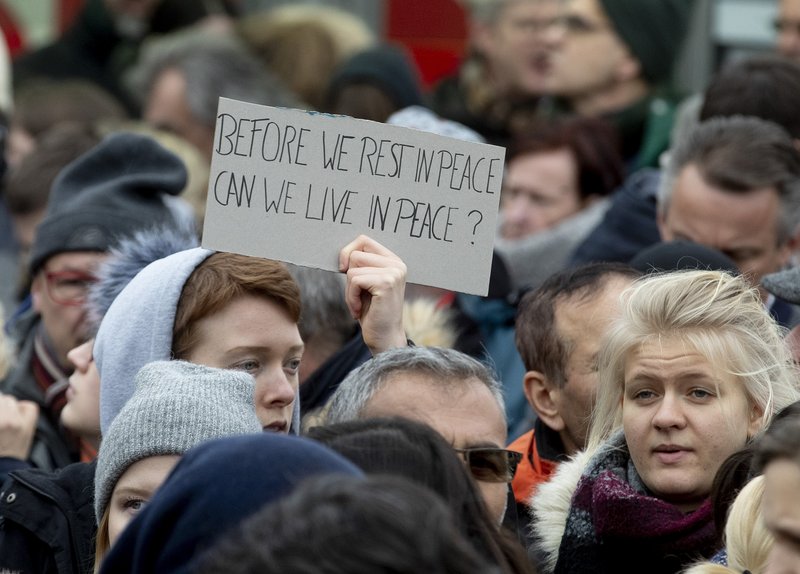 BEFORE WE REST IN PEACE
CAN WE LIVE IN PEACE ?